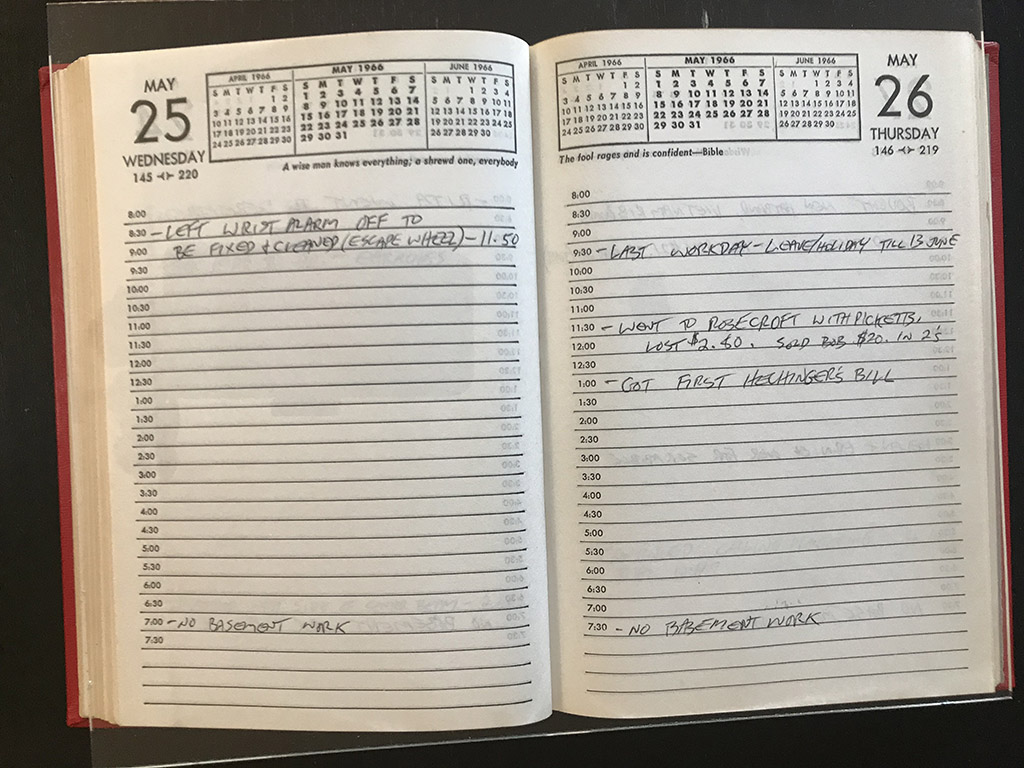 MAY
25
WEDNESDAY
145 -<>- 220
APRIL 1966
S M T W T F S
1 2
3 4 5 6 7 8 9
10 11 12 13 14 15 16
17 18 19 20 21 22 23
24 25 26 27 28 29 30
MAY 1966
S M T W T F S
1 2 3 4 5 6 7
8 9 10 11 12 13 14
15 16 17 18 19 20 21
22 23 24 25 26 27 28
29 30 31
JUNE 1966
S M T W T F S
1 2 3 4
5 6 7 8 9 10 11
12 13 14 15 16 17 18
19 20 21 22 23 24 25
26 27 28 29 30
A wise man knows everything; a shrewd one, everybody
8:00
8:30 - LEFT WRIST ALARM OFF TO
9:00 BE FIXED & CLEANED (ESCAPE WHEEL) - 11.50
9:30
10:00
10:30
11:00
11:30
12:00
12:30
1:00
1:30
2:00
2:30
3:00
3:30
4:00
4:30
5:00
5:30
6:00
6:30
7:00 - NO BASEMENT WORK
7:30
APRIL 1966
S M T W T F S
1 2
3 4 5 6 7 8 9
10 11 12 13 14 15 16
17 18 19 20 21 22 23
24 25 26 27 28 29 30
MAY 1966
S M T W T F S
1 2 3 4 5 6 7
8 9 10 11 12 13 14
15 16 17 18 19 20 21
22 23 24 25 26 27 28
29 30 31
JUNE 1966
S M T W T F S
1 2 3 4
5 6 7 8 9 10 11
12 13 14 15 16 17 18
19 20 21 22 23 24 25
26 27 28 29 30
MAY
26
THURSDAY
146 -<>- 219
The fool rages and is confident—Bible
8:00
8:30
9:00
9:30 - LAST WORKDAY - LEAVE/HOLIDAY TILL 13 JUNE
10:00
10:30
11:00
11:30 - WENT TO ROSECROFT WITH PICKETTS,
12:00 LOST $2.80. SOLD BOB $20. IN 2's
12:30
1:00 - GOT FIRST HECHINGER'S BILL
1:30
2:00
2:30
3:00
3:30
4:00
4:30
5:00
5:30
6:00
6:30
7:00
7:30 - NO BASEMENT WORK